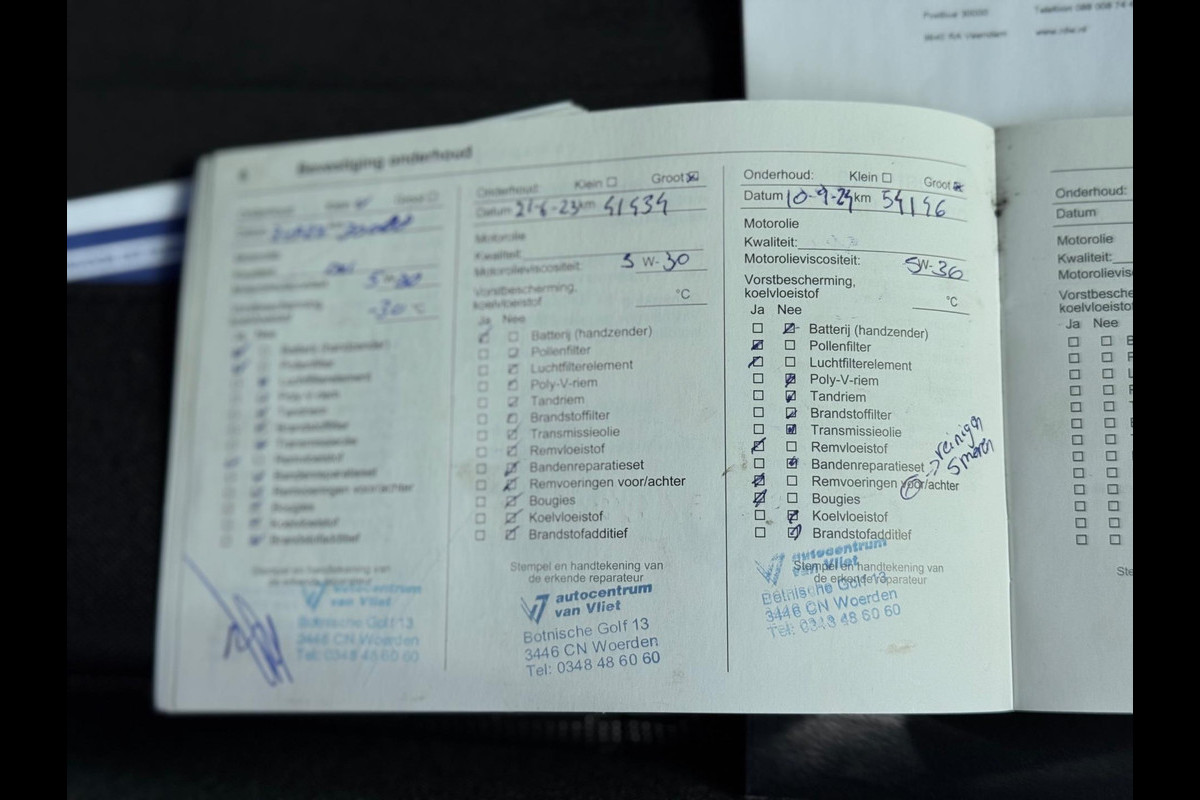 Postbus 30000
Telefoon 088 008 74 4
9640 RA Veendam
www.rdw.nl
6 Bevestiging onderhoud
5-30
-30 °C
Batterij (handzender)
Pollenfilter
Luchtfilterelement
Poly-V-riem
Tandriem
Brandstoffilter
Transmissieolie
Remvloeistof
Bandenreparatieset
Remvoeringen voor/achter
Bougies
Koelvloeistof
Brandstofadditief
Stempel en handtekening van
de erkende reparateur
autocentrum
van Vliet
Botnische Golf 13
3446 CN Woerden
Tel: 0348 48 60 60
Onderhoud: Klein Groot
Datum 21-6-23 km 41434
Motorolie
Kwaliteit:
Motorolieviscositeit: 5 W-30
Vorstbescherming,
koelvloeistof
°C
Ja Nee
Batterij (handzender)
Pollenfilter
Luchtfilterelement
Poly-V-riem
Tandriem
Brandstoffilter
Transmissieolie
Remvloeistof
Bandenreparatieset
Remvoeringen voor/achter
Bougies
Koelvloeistof
Brandstofadditief
Stempel en handtekening van
de erkende reparateur
autocentrum
van Vliet
Botnische Golf 13
3446 CN Woerden
Tel: 0348 48 60 60
Onderhoud: Klein Groot
Datum 10-9-24 km 54146
Motorolie
Kwaliteit:
Motorolieviscositeit: 5W-30
Vorstbescherming,
koelvloeistof
°C
Ja Nee
Batterij (handzender)
Pollenfilter
Luchtfilterelement
Poly-V-riem
Tandriem
Brandstoffilter
Transmissieolie
Remvloeistof
Bandenreparatieset
Remvoeringen voor/achter
reinigen
smeren
Bougies
Koelvloeistof
Brandstofadditief
Stempel en handtekening van
de erkende reparateur
autocentrum
van Vliet
Botnische Golf 13
3446 CN Woerden
Tel: 0348 48 60 60
Onderhoud:
Datum
Motorolie
Kwaliteit:
Motorolievisc
Vorstbesche
koelvloeistof
Ja Nee
Ste